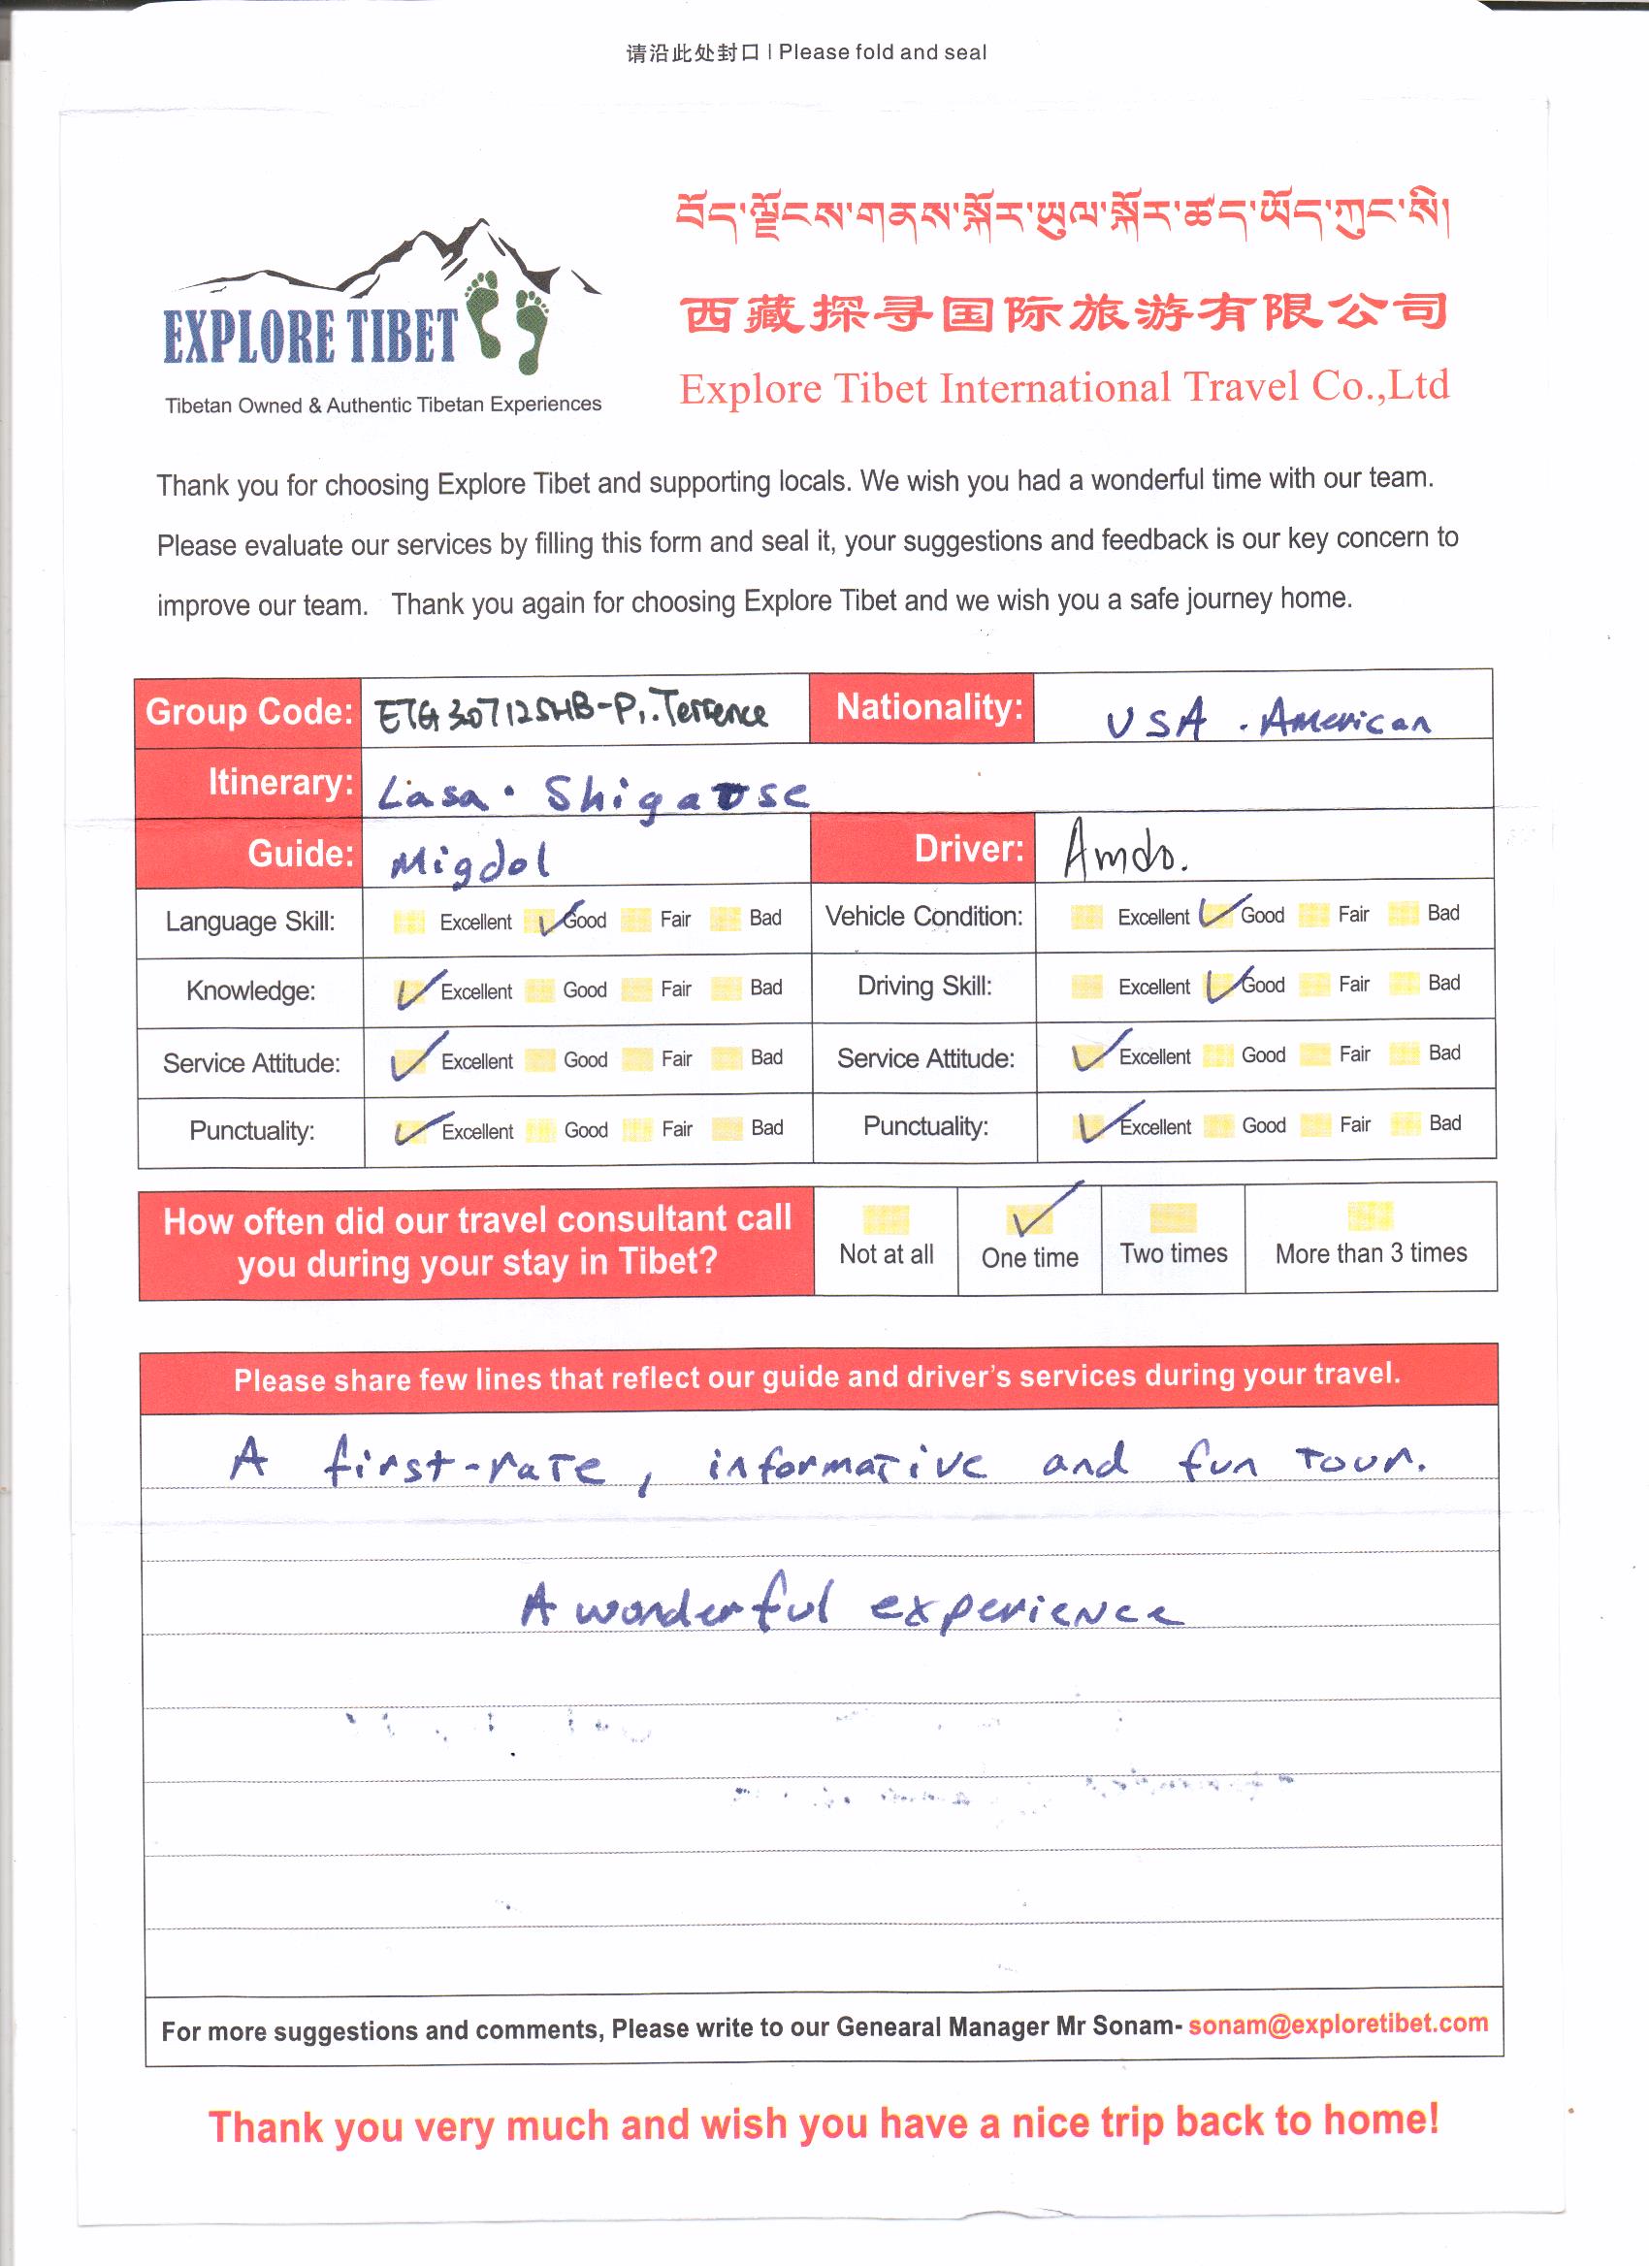 请沿此处封口 | Please fold and seal
བོད་ལྗོངས་གནས་སྐོར་ཡུལ་སྐོར་ཚད་ཡོད་ཀུང་སི།
西藏探寻国际旅游有限公司
Explore Tibet International Travel Co.,Ltd
EXPLORE TIBET
Tibetan Owned & Authentic Tibetan Experiences
Thank you for choosing Explore Tibet and supporting locals. We wish you had a wonderful time with our team.
Please evaluate our services by filling this form and seal it, your suggestions and feedback is our key concern to
improve our team. Thank you again for choosing Explore Tibet and we wish you a safe journey home.
Group Code: ETG30712SHB-P,.Terrence Nationality: USA . American
Itinerary: Lasa · Shigatse
Guide: Migdol Driver: Amdo.
Language Skill: Excellent Good Fair Bad Vehicle Condition: Excellent Good Fair Bad
Knowledge: Excellent Good Fair Bad Driving Skill: Excellent Good Fair Bad
Service Attitude: Excellent Good Fair Bad Service Attitude: Excellent Good Fair Bad
Punctuality: Excellent Good Fair Bad Punctuality: Excellent Good Fair Bad
How often did our travel consultant call
you during your stay in Tibet?
Not at all One time Two times More than 3 times
Please share few lines that reflect our guide and driver's services during your travel.
A first-rate, informative and fun tour.
A wonderful experience
For more suggestions and comments, Please write to our Genearal Manager Mr Sonam- sonam@exploretibet.com
Thank you very much and wish you have a nice trip back to home!